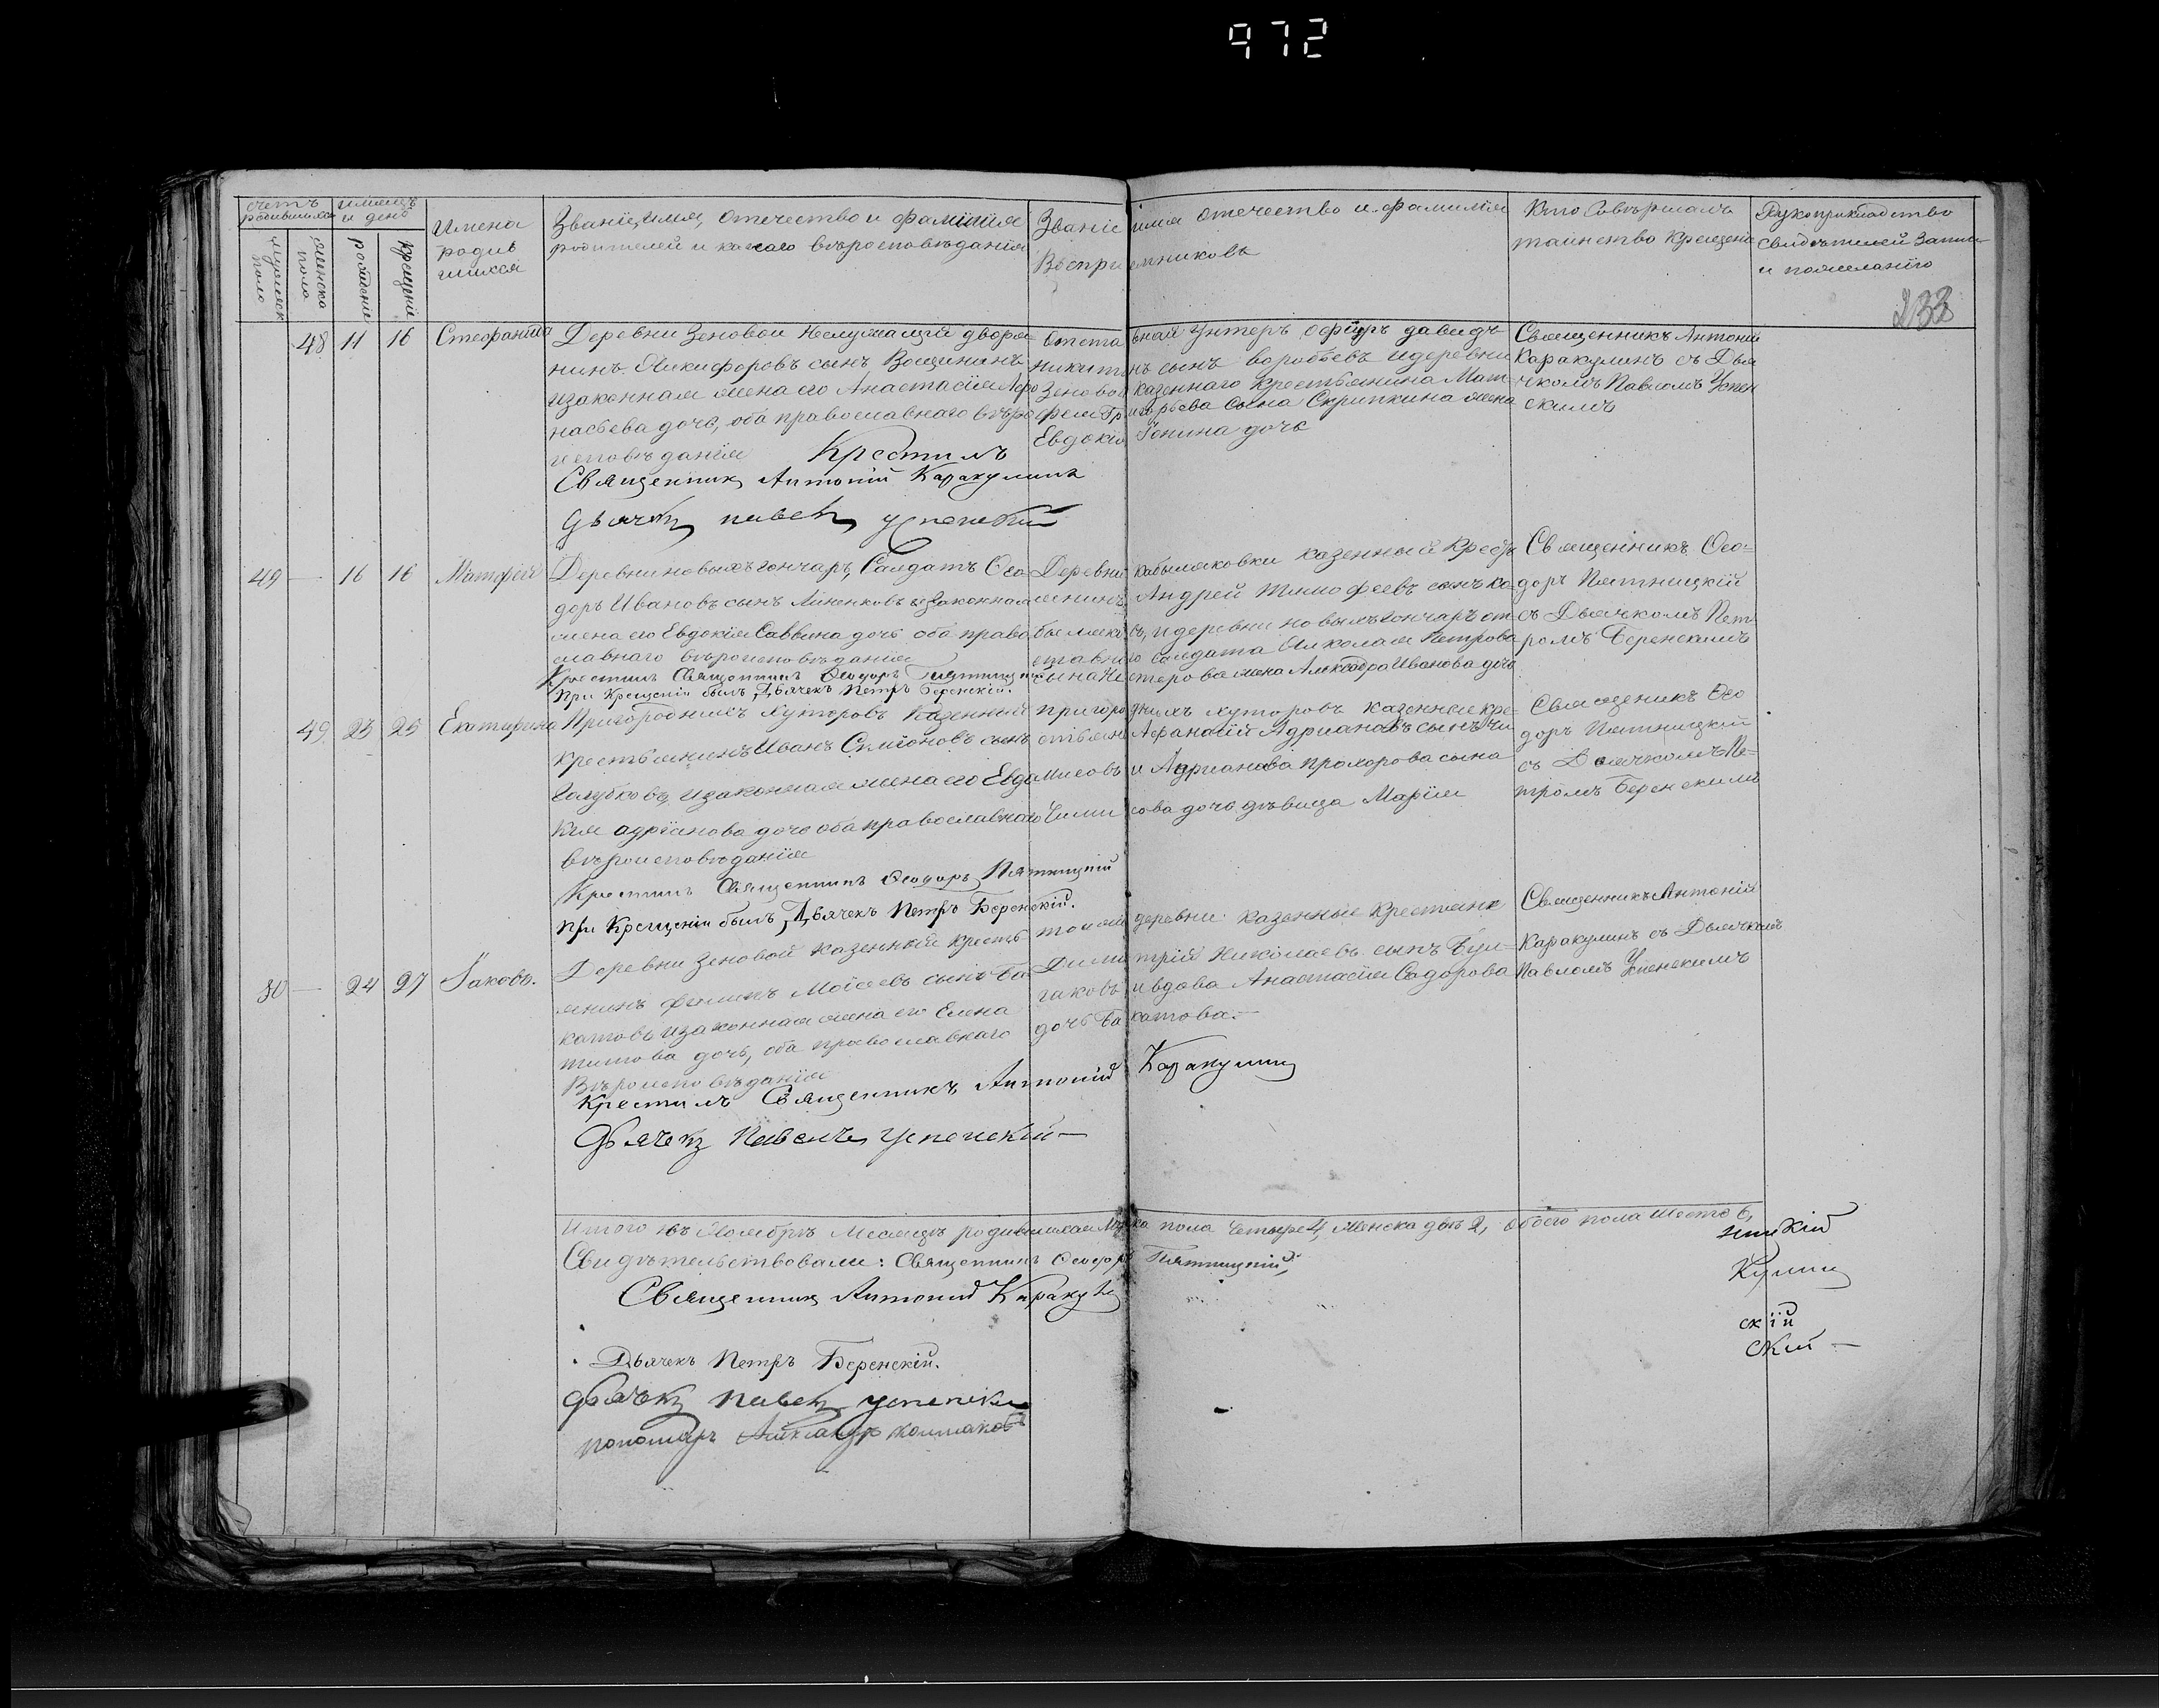 972
счетъ родившихся
мѣсяцъ и день
Имена родив шихся
Званіе, имя, отечество и фамилія родителей и какаго вѣроисповѣданія
Званіе имя отечество и фамилія Воспри емниковъ
Кто Совѣршалъ таинство Крещенія
Рукоприкладство свидѣтелей записи и пожеланію
мужеска пола
женска пола
рожденіе
крещеніе
233
48 11 16 Стефанида
Деревни Зеновой неслужащій дворя
нинъ Никифоровъ сынъ
изаконная жена его Анастасія Афо
насьева дочь, оба православнаго вѣро
исповѣданія Крестилъ
Священникъ Антоній Каракулинъ
Дьячекъ Павелъ Успенскій
Отста вной Унтеръ Офицръ давидъ
никити нъ сынъ воробьевъ идеревни
Зеновой казеннаго крестьянина Мат
фея Гр игорьева сына Скрипкина жена
Евдокія Іонина дочь
Священникъ Антоній
Каракулинъ съ Дья
чкомъ Павломъ Успен
скимъ
49 — 16 16 Матфей
Деревни новыхъ гончаръ, Салдатъ Ѳео
доръ Ивановъ сынъ изаконная
жена его Евдокія Саввина дочь оба право
славнаго вѣроисповѣданія
Крестилъ Священникъ Ѳеодоръ Пятницкій
При Крещеніи былъ Дьячекъ Петръ Беренскій.
Деревни кабыляковки казенный крестья
янинъ Андрей Тимофеевъ сынъ ка
быляко въ, идеревни новыхъ гончаръ от
ставна го салдата Николая Петрова
сына Не стерова жена Александра Иванова дочь
Священникъ Ѳео=
доръ Пятницкій
съ Дьячкомъ Пет
ромъ Беренскимъ
49 23 25 Екатирина
Пригородныхъ хуторовъ Казенный
крестьянинъ Иванъ Симіоновъ сынъ
Голубковъ, изаконная жена его Евдо
кія адріанова дочь оба православнаго
вѣроисповѣданія
Крестилъ Священникъ Ѳеодоръ Пятницкій
При Крещеніи былъ Дьячекъ Петръ Беренскій.
пригоро дныхъ хуторовъ казенные кре=
стьяне Афанасій Адриановъ сынъ Чи
мисовъ и Адрианова прохорова сына
Чими сова дочь дѣвица Марія
Священикъ Ѳео
доръ Пятницкій
съ Дьячкомъ Пе=
тромъ Беренскимъ
50 — 24 27 Іаковъ.
Деревни Зеновой казенный кресть
янинъ филипъ Моісеевъ сынъ Ба
катовъ изаконная жена его Елена
титова дочь, оба православнаго
Вѣроисповѣданія
Крестилъ Священникъ Антоній Каракулинъ
Дьячекъ Павелъ Успенскій
тойже деревни казенные крестьяне
Дими трій Николаевъ сынъ Бул=
гаковъ ивдова Анастасія Садорова
дочь Ба катова.—
Священникъ Антоній
Каракулинъ съ Дьячкомъ
Павломъ Успенскимъ
Итого въ Ноябрѣ Месяцѣ родившихся Мужска пола четыре 4, Женска двѣ 2, обоего пола шесть 6,
Свидѣтельствовали: Священникъ Ѳеодоръ Пятницкій,
Священникъ Антоній Каракули
Дьячекъ Петръ Беренскій.
Дьячекъ Павелъ Успенски
пономарь Александръ Колмаковъ
ницкій
Кулинъ
скій
скій —